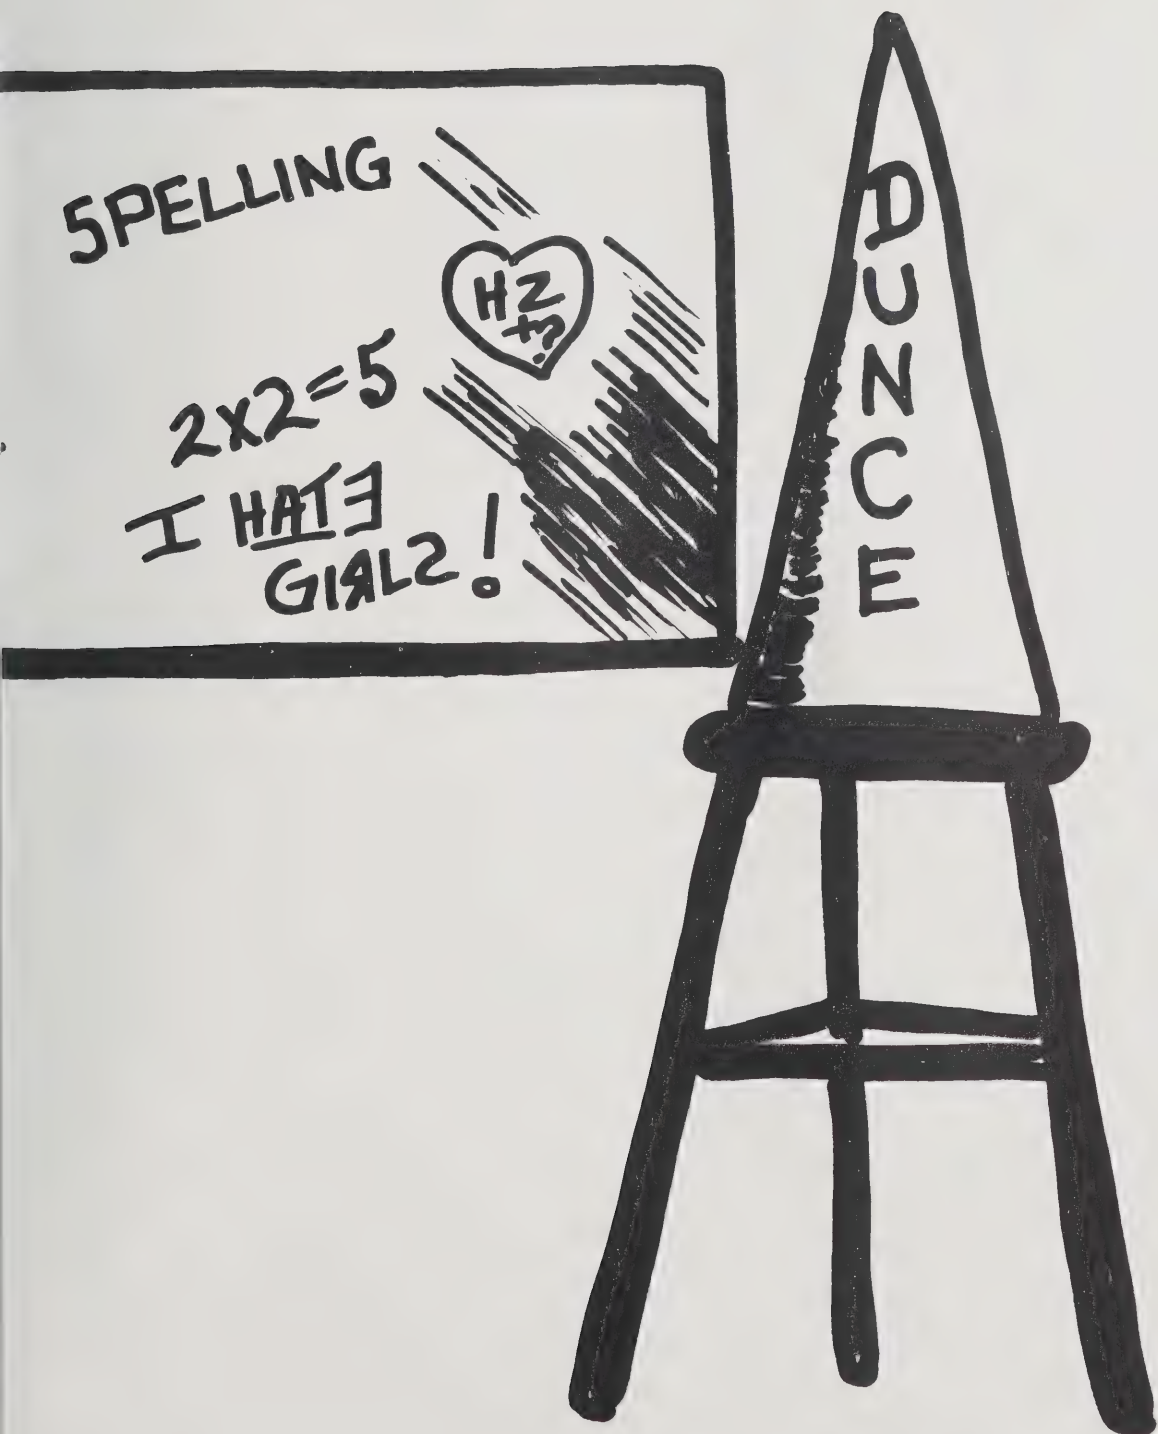 SPELLING
HZ
+?
2x2=5
I HATE
GIRLS!
DUNCE